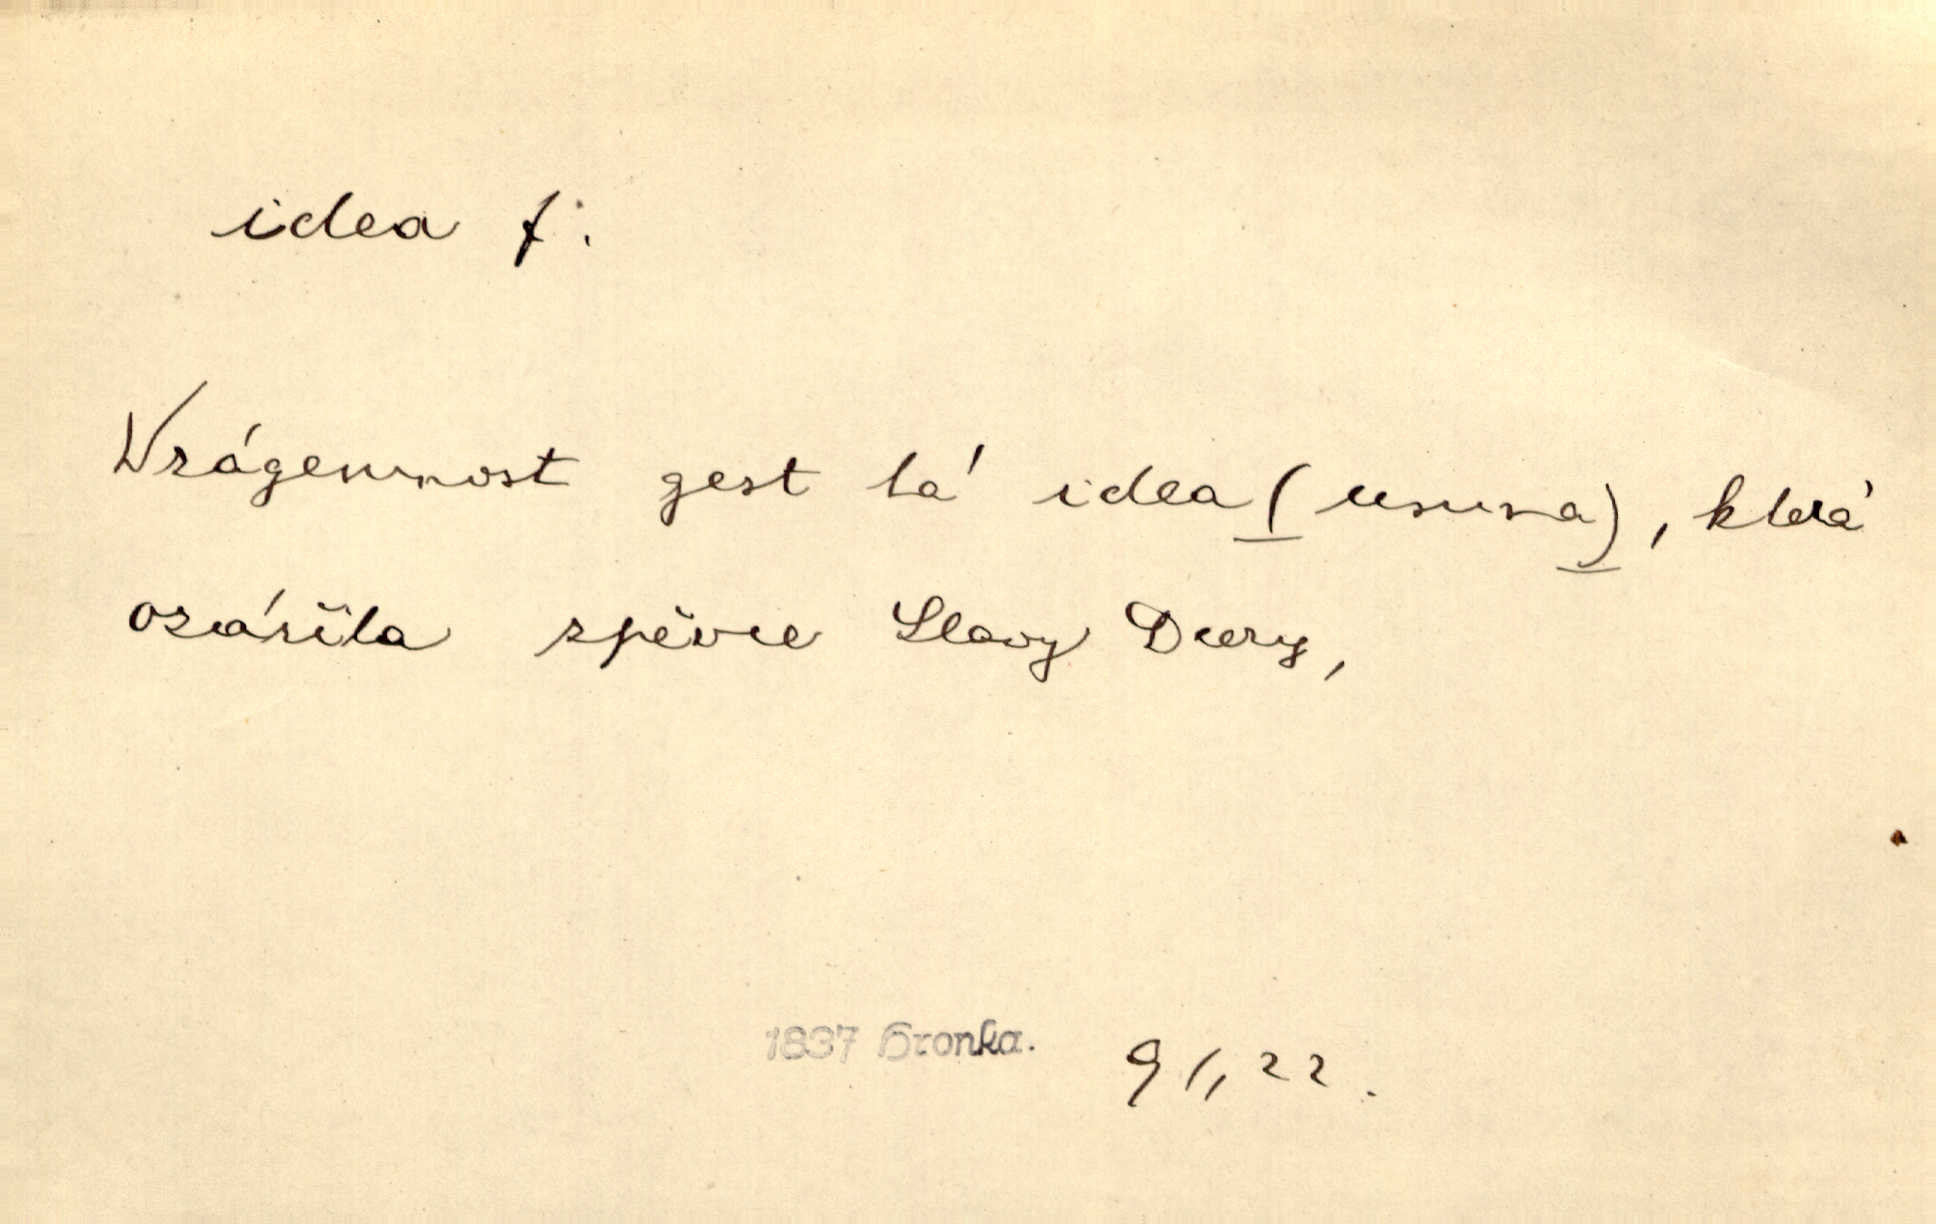 idea f.
Wzágemnost gest tá idea (usuna), která
ozářila zpěvce Slawy Dcery,
1837 Hronka. 91, 22.